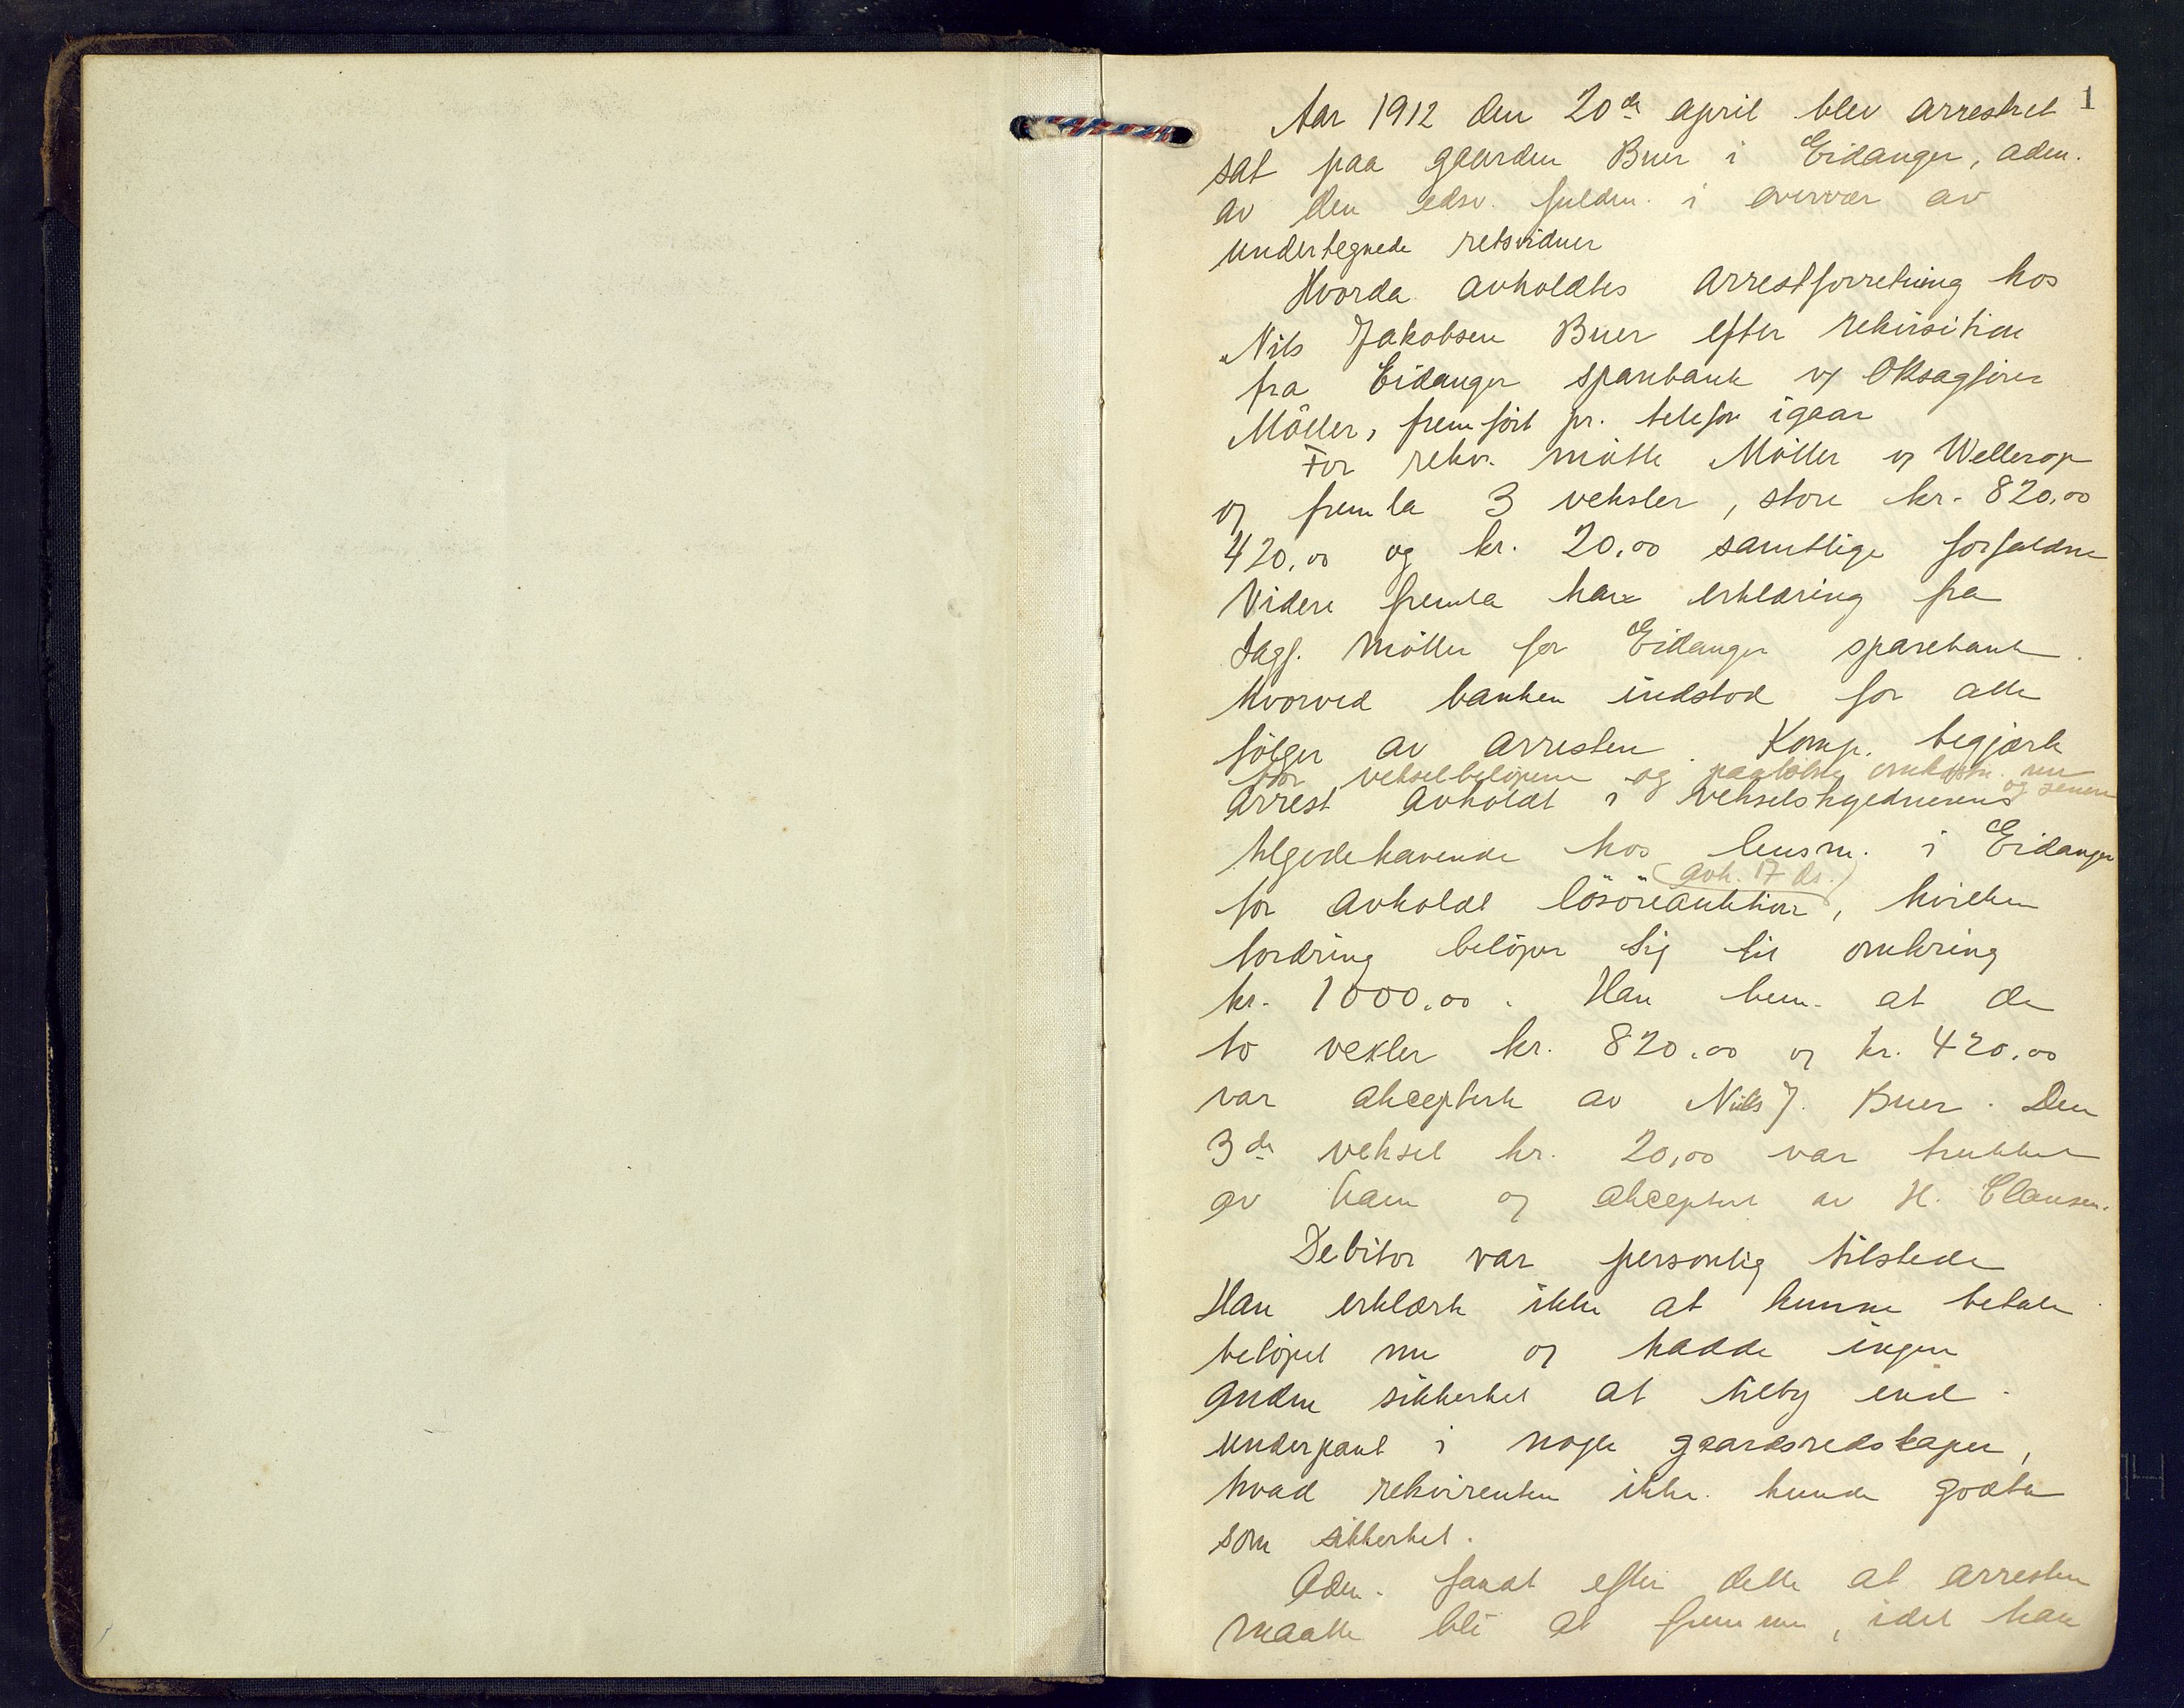 1
Aar 1912 den 20de april blev arrestret
sat paa gaarden Buer i Eidanger, adm.
av den edsv. fuldm. i overvær av
undertegnede retsvidner
Hvorda avholdtes arrestforretning hos
Nils Jakobsen Buer efter rekvisition
fra Eidanger sparebank v/ Oksagfører
Möller, fremført pr. telefon igaar
For rekv. møtte Møller og Wellerop
og fremla 3 veksler, store kr. 820.00
420.00 og kr. 20.00 samtlige forfaldne
Videre fremla han erklæring fra
Sagf. Møller for Eidanger sparebank
hvorved banken indstod for alle
følger av arresten. Komp. begjærte
for vekselbeløpene og paaløbne omkostn. nu
og senere
arrest avholdt i vekselskyldnerens
tilgodehavende hos lensm. i Eidanger
(avh. 17 ds.)
for avholdt løsøreauktion, hvilken
fordring beløper sig til omkring
kr. 1000.00. Han bem. at de
to vexler kr. 820.00 og kr. 420.00
var akcepterte av Nils J. Buer. Den
3de veksel kr. 20,00 var trukket
av ham og akceptert av H. Clausen.
Debitor var personlig tilstede
Han erklærte ikke at kunne betale
beløpet nu og hadde ingen
anden sikkerhet at tilby end
underpant i nogle gaardsredskaper,
hvad rekvirenten ikke kunde godta
som sikkerhet.
Adm. fandt efter dette at arresten
maatte bli at fremme, idet han